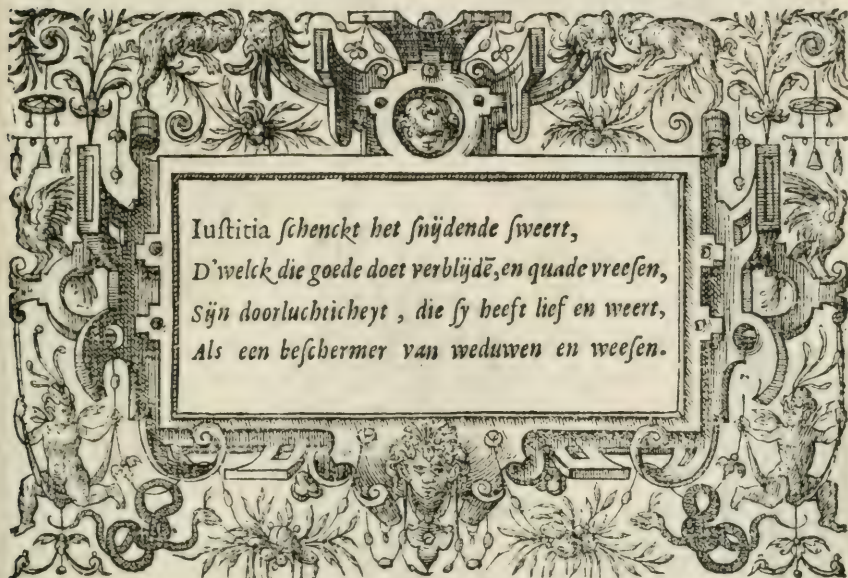 Iuſtitia ſchenckt het ſnijdende ſweert,
D'welck die goede doet verblijdē, en quade vreeſen,
Sijn doorluchticheyt , die ſy heeft lief en weert,
Als een beſchermer van weduwen en weeſen.